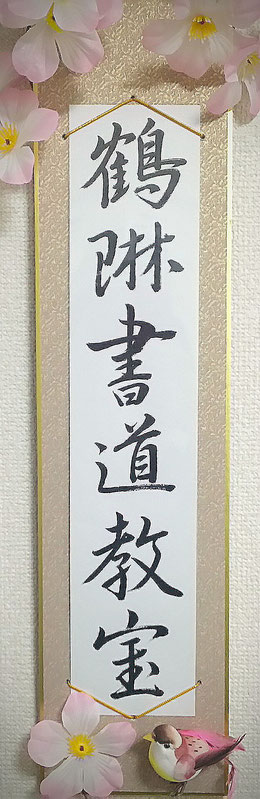 鶴琳書道教室